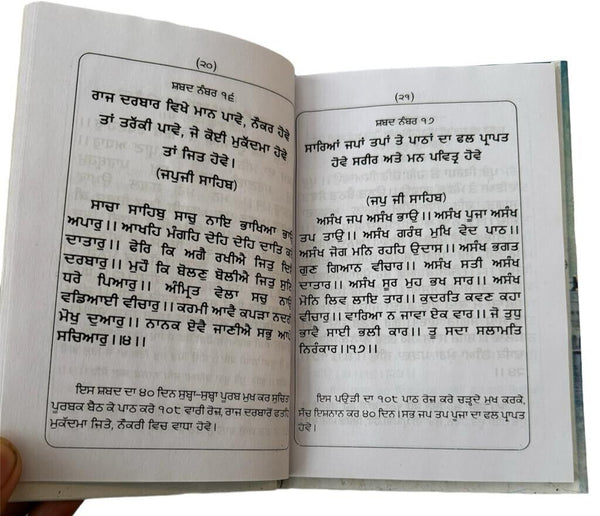 (੨੦)
ਸ਼ਬਦ ਨੰਬਰ ੧੬
ਰਾਜ ਦਰਬਾਰ ਵਿਖੇ ਮਾਨ ਪਾਵੇ, ਨੌਕਰ ਹੋਵੇ
ਤਾਂ ਤਰੱਕੀ ਪਾਵੇ, ਜੇ ਕੋਈ ਮੁਕੱਦਮਾ ਹੋਵੇ
ਤਾਂ ਜਿਤ ਹੋਵੇ।
(ਜਪੁਜੀ ਸਾਹਿਬ)
ਸਾਚਾ ਸਾਹਿਬੁ ਸਾਚੁ ਨਾਇ ਭਾਖਿਆ ਭਾ
ਅਪਾਰੁ।। ਆਖਹਿ ਮੰਗਹਿ ਦੇਹਿ ਦੇਹਿ ਦਾਤਿ ਕ
ਦਾਤਾਰੁ।। ਫੇਰਿ ਕਿ ਅਗੈ ਰਖੀਐ ਜਿਤੁ ਦਿ
ਦਰਬਾਰੁ।। ਮੁਹੌ ਕਿ ਬੋਲਣੁ ਬੋਲੀਐ ਜਿਤੁ ਸੁਣਿ
ਧਰੇ ਪਿਆਰੁ।। ਅੰਮ੍ਰਿਤ ਵੇਲਾ ਸਚੁ ਨਾ
ਵਡਿਆਈ ਵੀਚਾਰੁ।। ਕਰਮੀ ਆਵੈ ਕਪੜਾ ਨਦ
ਮੋਖੁ ਦੁਆਰੁ।। ਨਾਨਕ ਏਵੈ ਜਾਣੀਐ ਸਭੁ ਆ
ਸਚਿਆਰੁ।।੪।।
ਇਸ ਸ਼ਬਦ ਦਾ ੪੦ ਦਿਨ ਸੁਬ੍ਹਾ-ਸੁਬ੍ਹਾ ਪੂਰਬ ਮੁਖ ਕਰ ਸੁਚਿਤ
ਪੂਰਬਕ ਬੈਠ ਕੇ ਪਾਠ ਕਰੇ ੧੦੮ ਵਾਰੀ ਰੋਜ਼, ਰਾਜ ਦਰਬਾਰੋਂ ਫਤਹਿ
ਮੁਕੱਦਮਾ ਜਿਤੇ, ਨੌਕਰੀ ਵਿਚ ਵਾਧਾ ਹੋਵੇ।
(੨੧)
ਸ਼ਬਦ ਨੰਬਰ ੧੭
ਸਾਰਿਆਂ ਜਪਾਂ ਤਪਾਂ ਤੇ ਪਾਠਾਂ ਦਾ ਫਲ ਪ੍ਰਾਪਤ
ਹੋਵੇ ਸਰੀਰ ਅਤੇ ਮਨ ਪਵਿਤ੍ਰ ਹੋਵੇ
(ਜਪੁ ਜੀ ਸਾਹਿਬ)
ਅਸੰਖ ਜਪ ਅਸੰਖ ਭਾਉ।। ਅਸੰਖ ਪੂਜਾ ਅਸੰਖ
ਤਪ ਤਾਉ।। ਅਸੰਖ ਗਰੰਥ ਮੁਖਿ ਵੇਦ ਪਾਠ।।
ਅਸੰਖ ਜੋਗ ਮਨਿ ਰਹਹਿ ਉਦਾਸ।। ਅਸੰਖ ਭਗਤ
ਗੁਣ ਗਿਆਨ ਵੀਚਾਰ।। ਅਸੰਖ ਸਤੀ ਅਸੰਖ
ਦਾਤਾਰ।। ਅਸੰਖ ਸੂਰ ਮੁਹ ਭਖ ਸਾਰ।। ਅਸੰਖ
ਮੋਨਿ ਲਿਵ ਲਾਇ ਤਾਰ।। ਕੁਦਰਤਿ ਕਵਣ ਕਹਾ
ਵੀਚਾਰੁ।। ਵਾਰਿਆ ਨ ਜਾਵਾ ਏਕ ਵਾਰ।। ਜੋ ਤੁਧੁ
ਭਾਵੈ ਸਾਈ ਭਲੀ ਕਾਰ।। ਤੂ ਸਦਾ ਸਲਾਮਤਿ
ਨਿਰੰਕਾਰ।।੧੭।।
ਇਸ ਪਉੜੀ ਦਾ ੧੦੮ ਪਾਠ ਰੋਜ਼ ਕਰੇ ਚੜ੍ਹਦੇ ਮੁਖ ਕਰਕੇ,
ਸੌਚ ਇਸ਼ਨਾਨ ਕਰ ੪੦ ਦਿਨ। ਸਭ ਜਪ ਤਪ ਪੂਜਾ ਦਾ ਫਲ ਪ੍ਰਾਪਤ
ਹੋਵੇ।